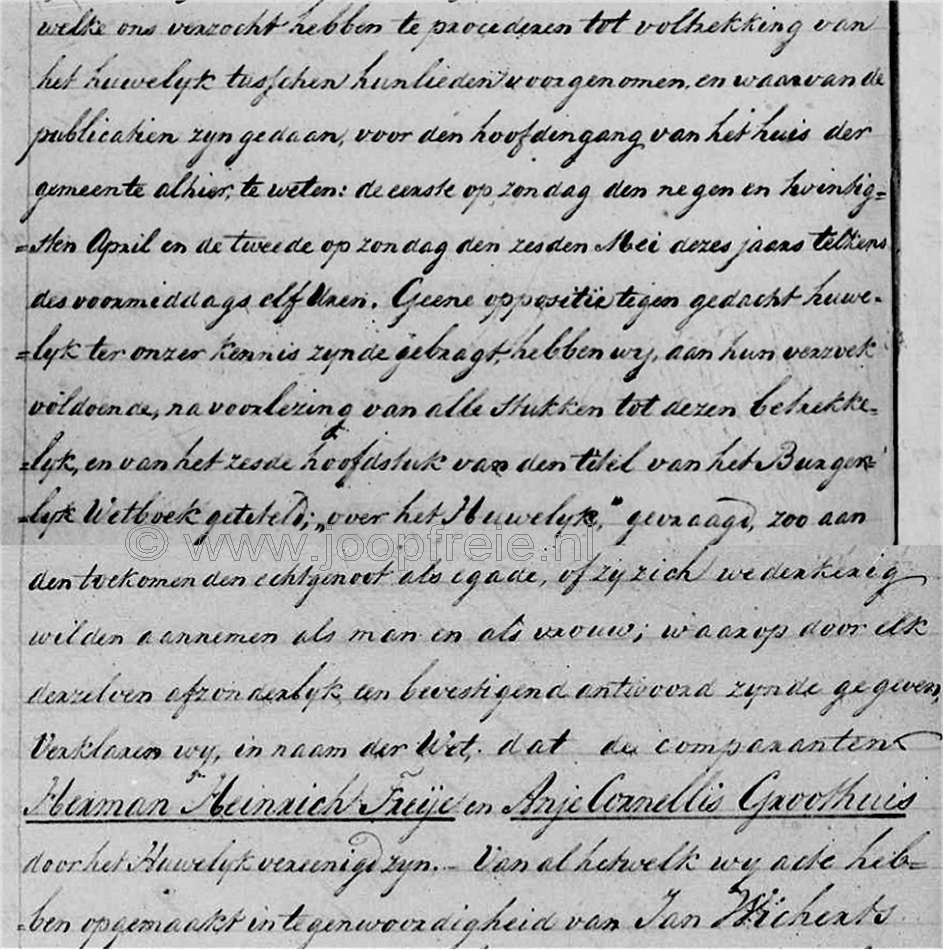 welke ons verzocht hebben te procederen tot voltrekking van
het huwelyk tusschen hunlieden voorgenomen, en waarvan de
publicatien zyn gedaan, voor den hoofdingang van het huis der
gemeente alhier, te weten: de eerste op zondag den negen en twintig=
=sten April en de tweede op zondag den zesden Mei dezes jaars telkens
des voormiddags elf Uren. Geene oppositie tegen gedacht huwe=
=lyk ter onzer kennis zynde gebragt, hebben wy, aan hun verzoek
voldoende, na voorlezing van alle stukken tot dezen betrekke=
=lyk, en van het zesde hoofdstuk van den titel van het Burger=
=lyk Wetboek getiteld; „over het Huwelyk," gevraagd, zoo aan
© www.joopfreie.nl
den toekomenden echtgenoot als egade, of zy zich wederkerig
wilden aannemen als man en als vrouw; waarop door elk
derzelven afzonderlyk een bevestigend antwoord zynde gegeven,
Verklaren wy, in naam der Wet, dat de comparanten
Herman Heinrich Freije en Anje Cornellis Groothuis
door het Huwelyk vereenigd zyn. – Van al hetwelk wy acte heb=
=ben opgemaakt in tegenwoordigheid van Jan Wicherts